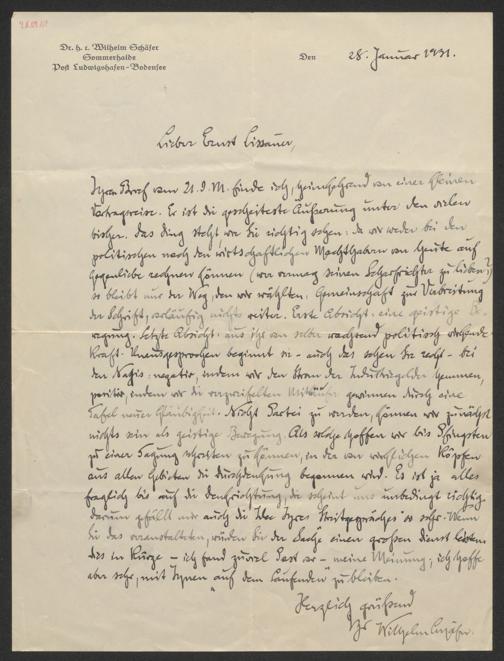 Dr. h. c. Wilhelm Schäfer
Sommerhalde
Post Ludwigshafen-Bodensee
Den 28. Januar 1931.
Lieber Ernst Lissauer,
Ihren Brief vom 21. d. M. finde ich, heimkehrend von einer kleinen
Vortragsreise. Er ist die gescheiteste Äußerung unter den vielen
bisher. Das Ding steht, wie Sie richtig sehen: da wir weder bei den
politischen noch den wirtschaftlichen Machthabern von heute auf
Gegenliebe rechnen können (wer vermag seinen Scharfrichter zu lieben?)
so bleibt nur der Weg, den wir wählten: Gemeinschaft zur Verbreitung
der Schrift, vorläufig nichts weiter. Erste Absicht: eine geistige Be-
wegung. Letzte Absicht: aus ihr von selber wachsend politisch wirkende
Kraft. Unausgesprochen beginnt sie - auch das sehen Sie recht - bei
den Nazis: negativ, indem wir den Strom der Industriegelder hemmen,
positiv, indem wir die verzweifelten Mitläufer gewinnen durch eine
Tafel neuer Gläubigkeit. Nicht Partei zu werden, können wir zunächst
nichts sein als geistige Bewegung. Als solche hoffen wir bis Pfingsten
zu einer Tagung schreiten zu können, in der von wirklichen Köpfen
aus allen Gebieten die Durchdenkung begonnen wird. Es ist ja alles
fraglich bis auf die Denkrichtung, die scheint uns unbedingt richtig.
Darum gefällt mir auch die Idee Ihres Streitgespräches so sehr. Wenn
Sie das veranstalteten, würden Sie der Sache einen großen Dienst leisten.
Dies in Kürze - ich fand zuviel Post vor - meine Meinung; ich hoffe
aber sehr, mit Ihnen "auf dem Laufenden" zu bleiben.
Herzlich grüßend
Ihr Wilhelm Schäfer.